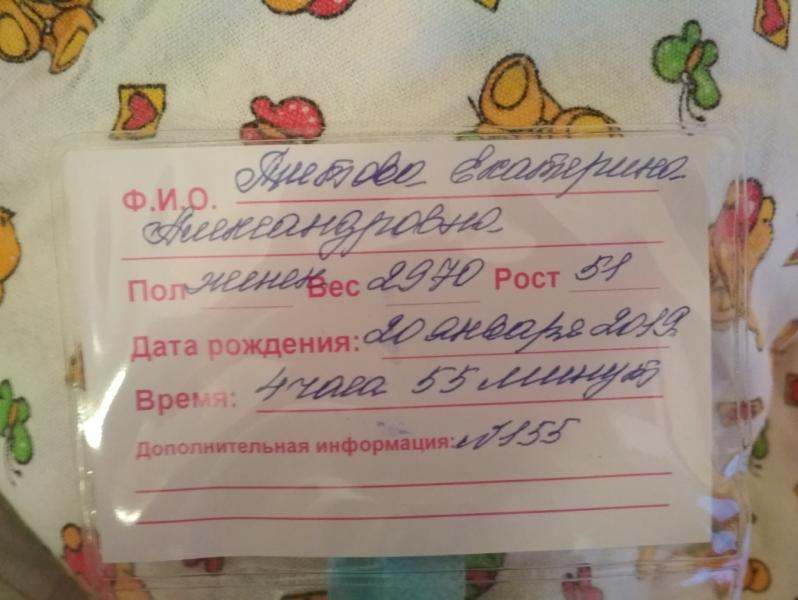 Ф.И.О. Екатерина
Александровна
Пол женск Вес 2970 Рост 51
Дата рождения: 20 января 2019
Время: 4 часа 55 минут
Дополнительная информация: №155